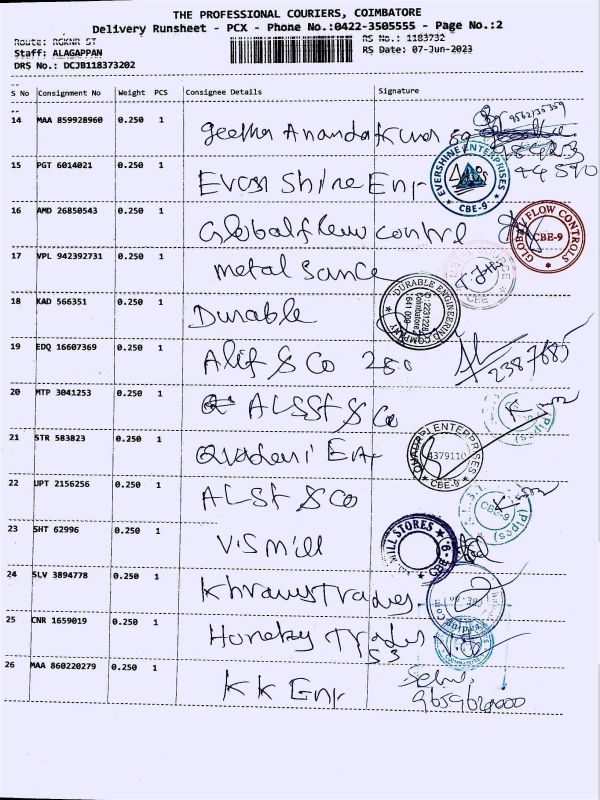 THE PROFESSIONAL COURIERS, COIMBATORE
Delivery Runsheet - PCX - Phone No.:0422-3505555 - Page No.:2
Route: RGKNR ST
RS No.: 1183732
Staff: ALAGAPPAN
RS Date: 07-Jun-2023
DRS No.: DCJB118373202
S No Consignment No Weight PCS Consignee Details Signature
14 MAA 859928960 0.250 1 Geetha
15 PGT 6014021 0.250 1 Shine Ent
EVERSHINE ENTERPRISES CBE-9
16 AMD 26850543 0.250 1 Globalflow control
GLOBAL FLOW CONTROLS CBE-9
17 VPL 942392731 0.250 1 metal
CBE
18 KAD 566351 0.250 1 Durable
DURABLE ENGINEERING COMPANY
19 EDQ 16607369 0.250 1 Alif & Co 280
2387685
20 MTP 3041253 0.250 1 & Co
(Pipes)
21 STR 583823 0.250 1 Ent
ENTERPRISES 4379110 CBE-9
22 UPT 2156256 0.250 1 ALSt & Co
CBE-9 (Pipes)
23 SHT 62996 0.250 1 Vismill
MILL STORES CBE-9
24 SLV 3894778 0.250 1 Traders
25 CNR 1659019 0.250 1
53
26 MAA 860220279 0.250 1 KK Ent